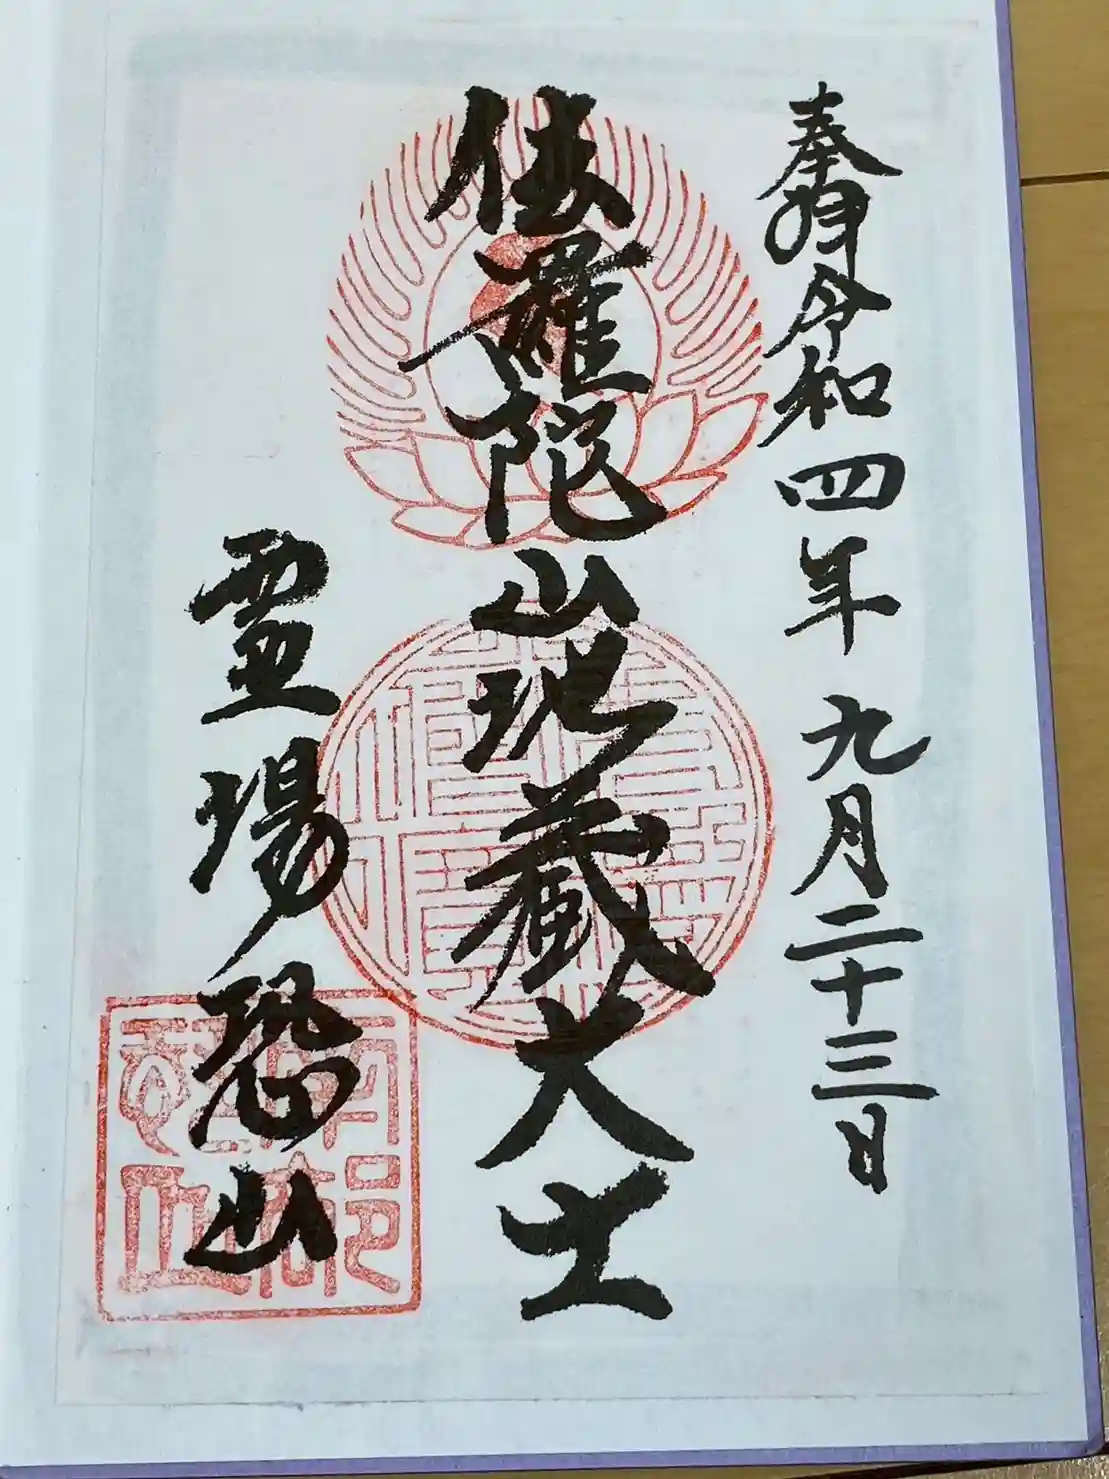 奉拝令和四年九月二十三日
佉羅陀山地蔵大士
霊場恐山